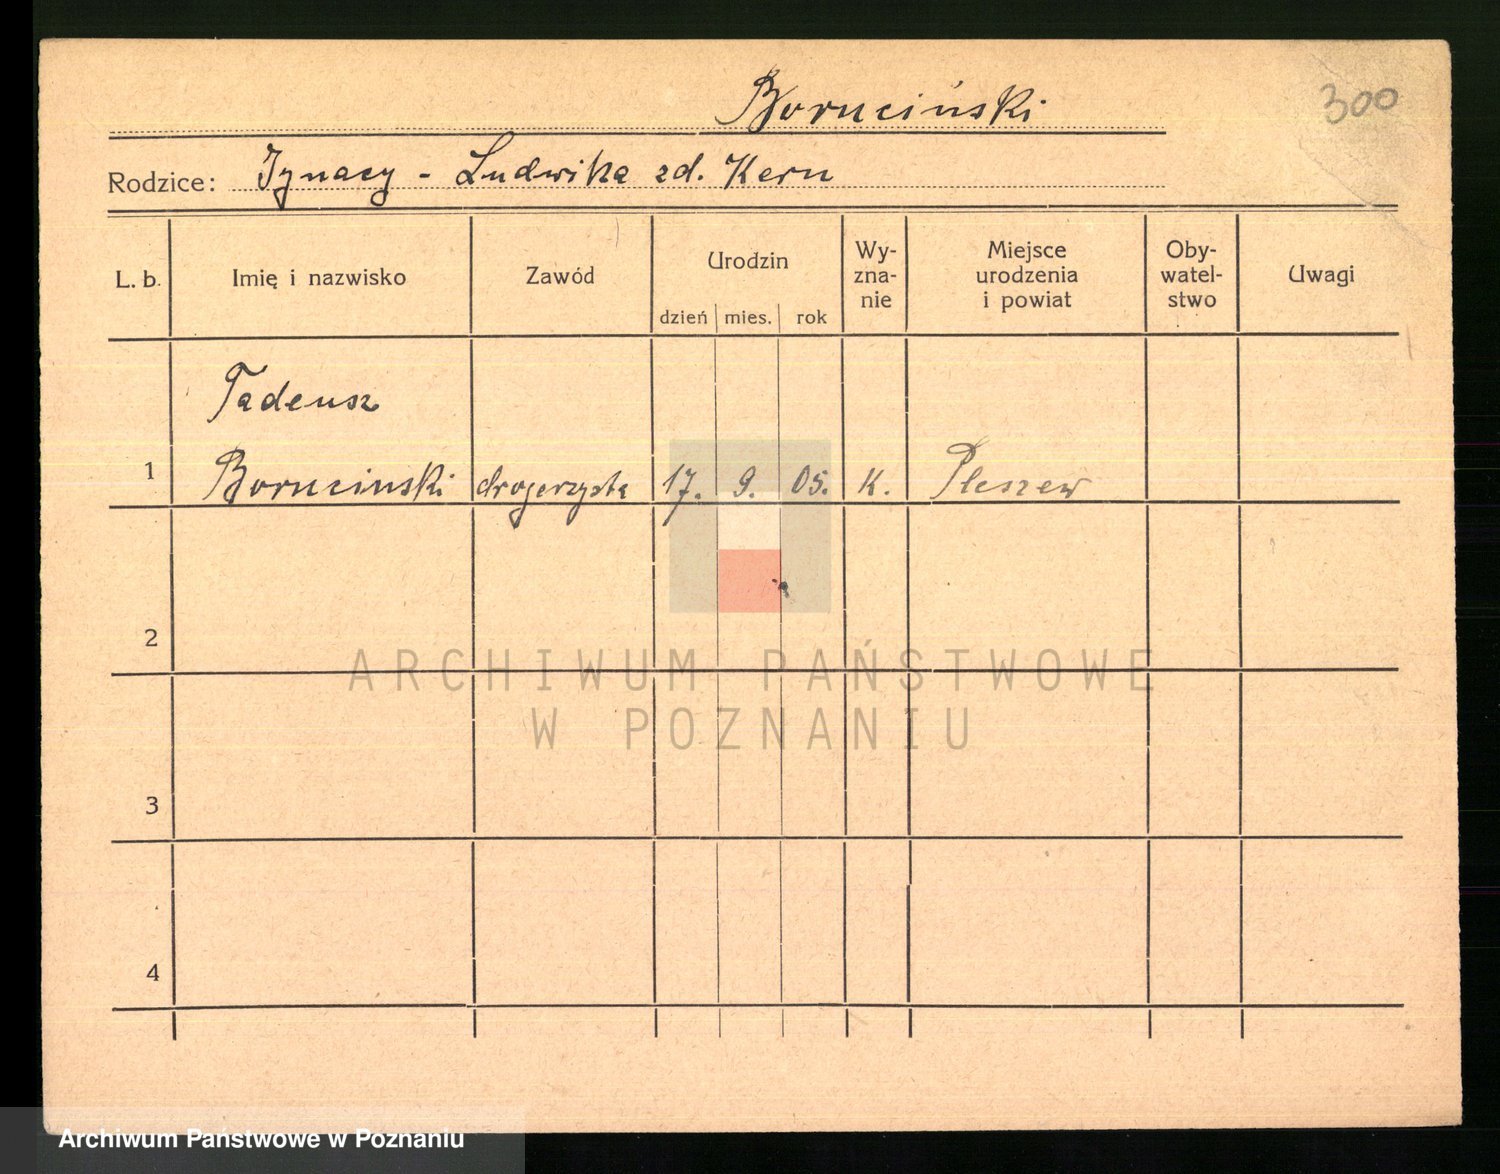 Boruciński
300
Rodzice: Ignacy - Ludwika zd. Kern
L. b.
Imię i nazwisko
Zawód
Urodzin
dzień mies. rok
Wy-
zna-
nie
Miejsce
urodzenia
i powiat
Oby-
watel-
stwo
Uwagi
Tadeusz
1 Boruciński drogerzysta 17. 9. 05. K. Pleszew
2
3
4
ARCHIWUM PAŃSTWOWE
W POZNANIU
Archiwum Państwowe w Poznaniu